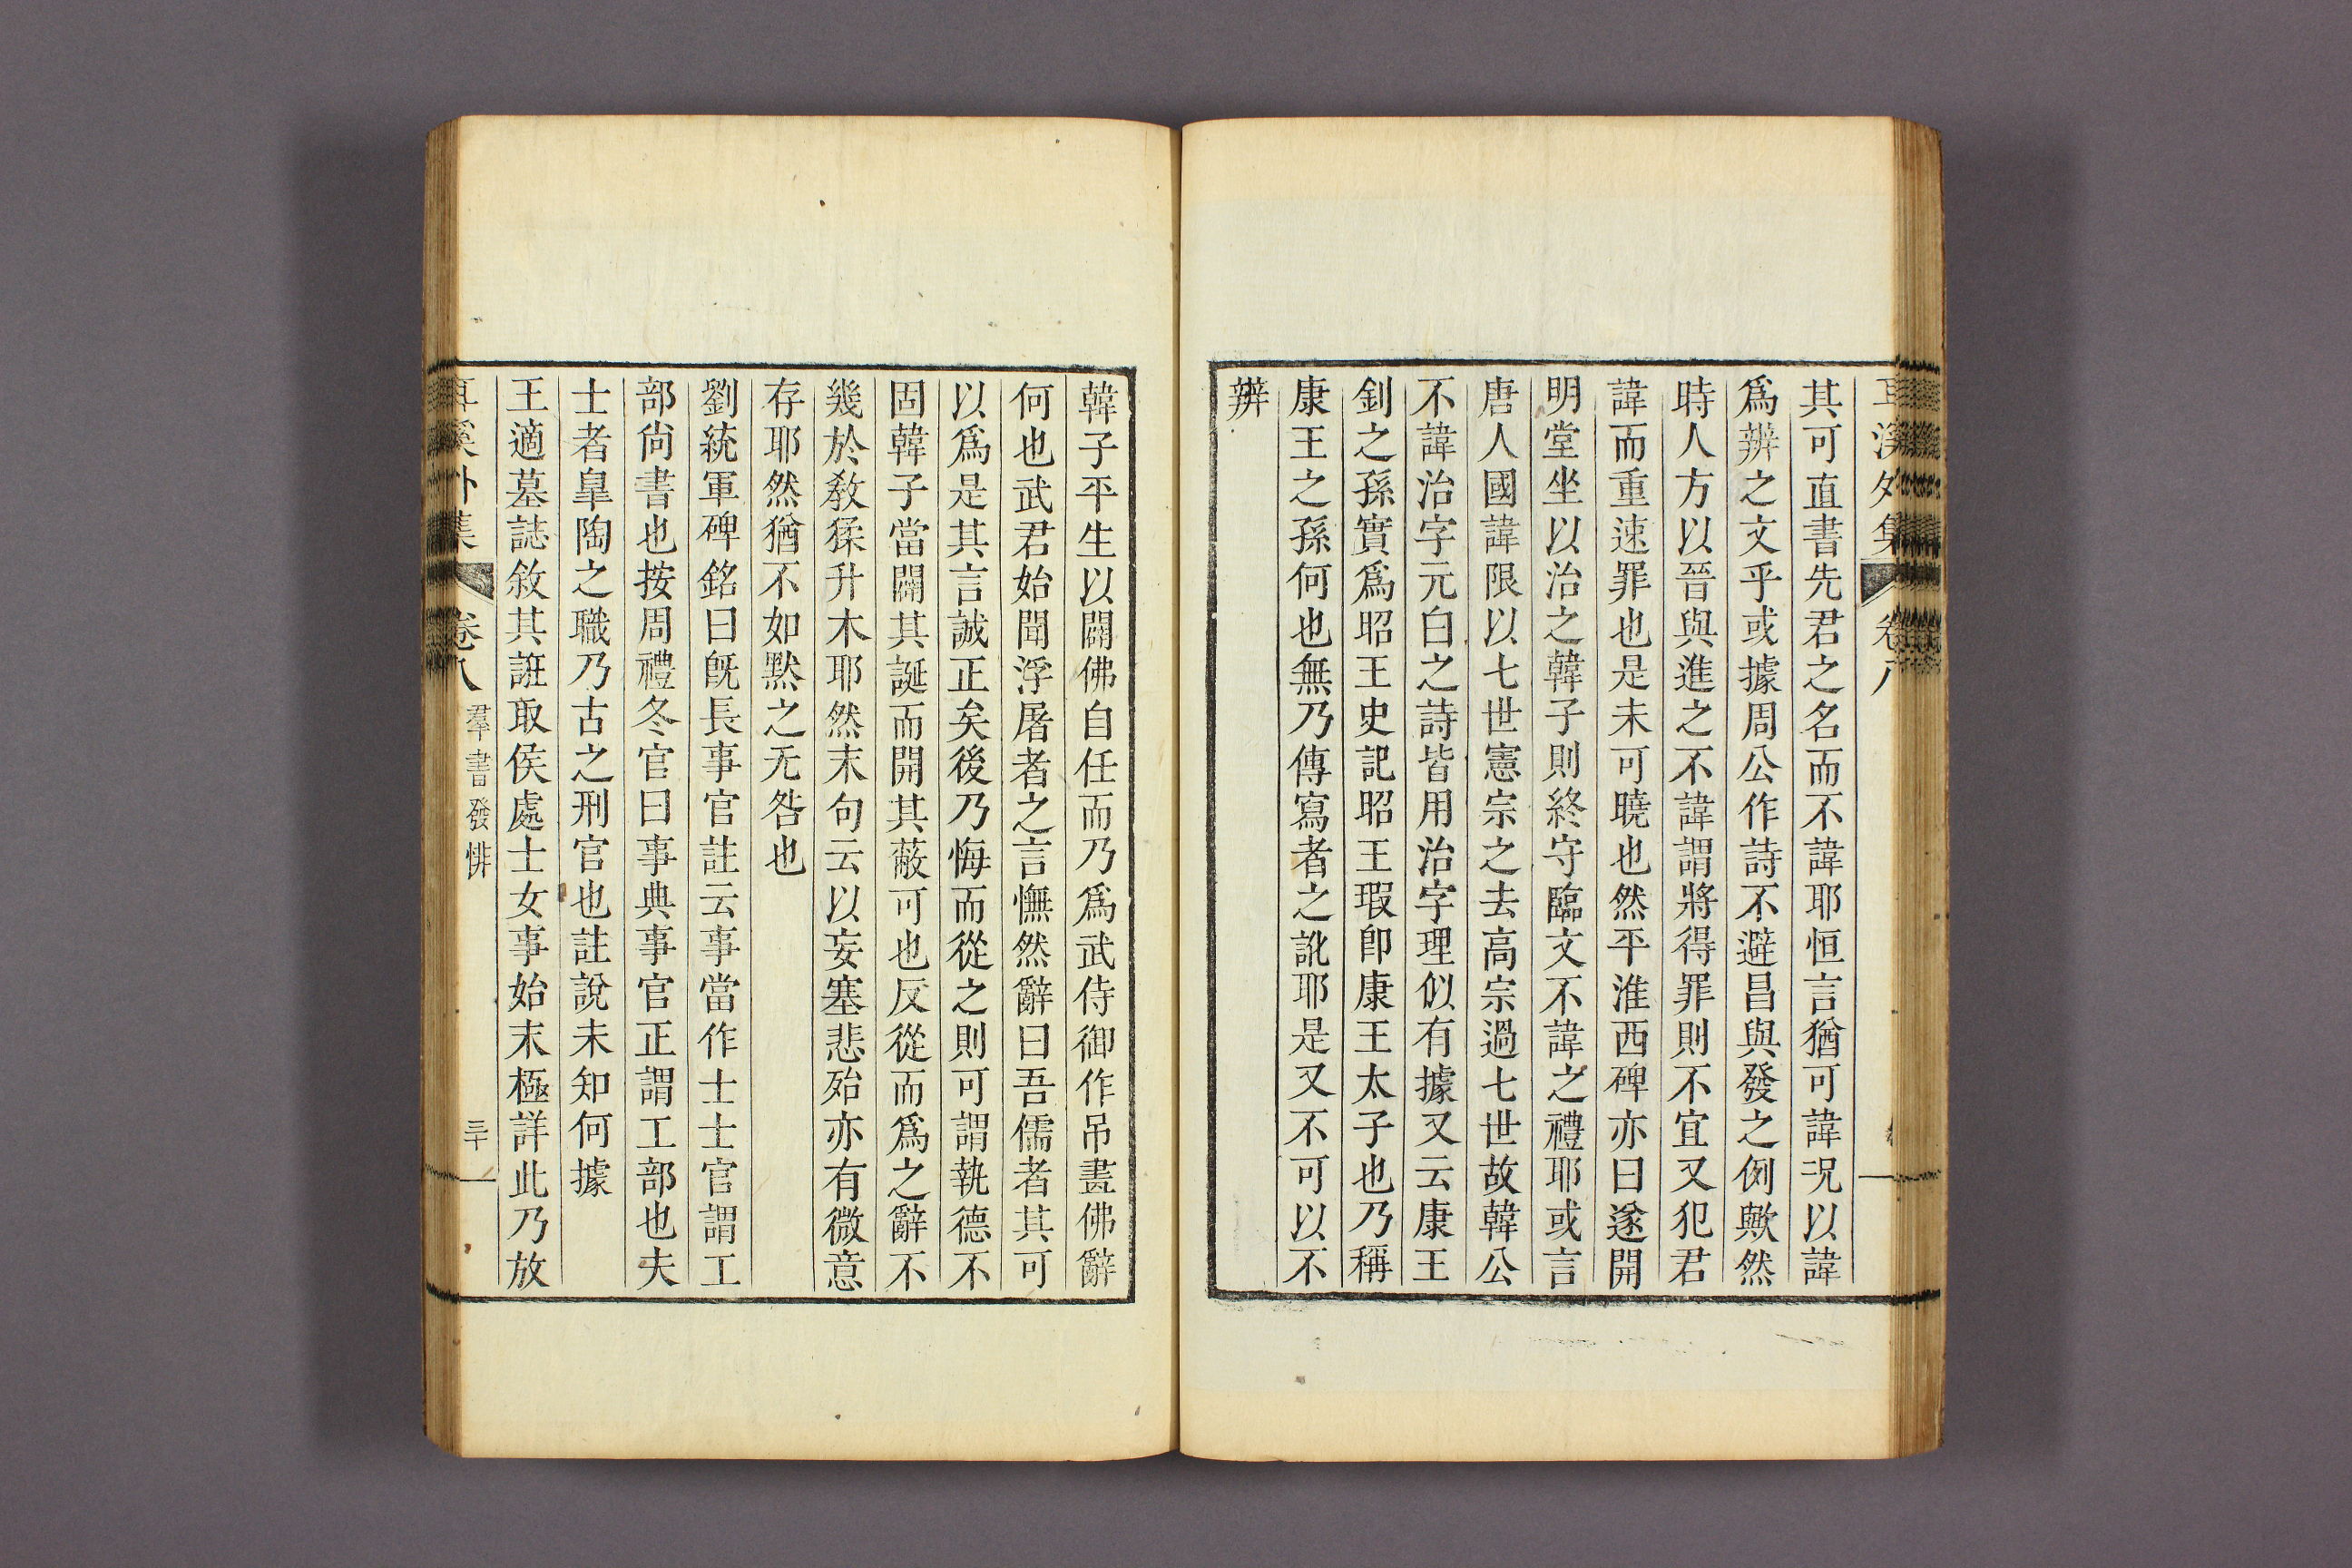 其可直書先君之名而不諱耶恒言猶可諱况以諱
爲辨之文乎或據周公作詩不避昌與發之例歟然
時人方以晉與進之不諱謂將得罪則不宜又犯君
諱而重速罪也是未可曉也然平淮西碑亦曰遂開
明堂坐以治之韓子則終守臨文不諱之禮耶或言
唐人國諱限以七世憲宗之去高宗過七世故韓公
不諱治字元白之詩皆用治字理似有據又云康王
釗之孫實爲昭王史記昭王瑕卽康王太子也乃稱
康王之孫何也無乃傳寫者之訛耶是又不可以不
辨
韓子平生以闢佛自任而乃爲武侍御作吊畫佛辭
何也武君始聞浮屠者之言憮然辭曰吾儒者其可
以爲是其言誠正矣後乃悔而從之則可謂執德不
固韓子當闢其誕而開其蔽可也反從而爲之辭不
幾於敎猱升木耶然末句云以妄塞悲殆亦有微意
存耶然猶不如默之无咎也
劉統軍碑銘曰旣長事官註云事當作士士官謂工
部尙書也按周禮冬官曰事典事官正謂工部也夫
士者臯陶之職乃古之刑官也註說未知何據
王適墓誌敘其誑取侯處士女事始末極詳此乃放
耳溪外集 卷八 羣書發悱 三十